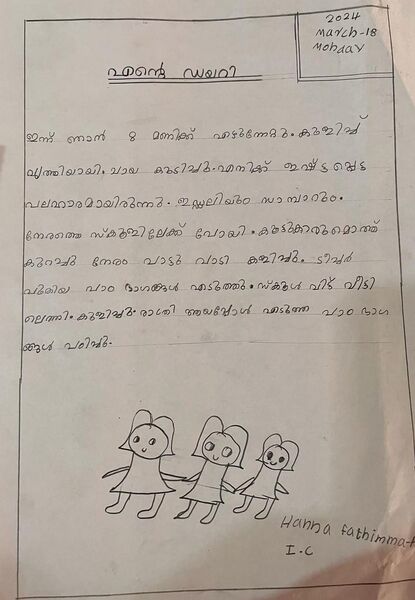 2024
March-18
Monday
എന്റെ ഡയറി
ഇന്ന് ഞാൻ 8 മണിക്ക് എഴുന്നേറ്റു. കുളിച്ച്
വൃത്തിയായി. ചായ കുടിച്ചു. എനിക്ക് ഇഷ്ടപ്പെട്ട
പലഹാരമായിരുന്നു. ഇഡ്ഡലിയും സാമ്പാറും.
നേരത്തെ സ്കൂളിലേക്ക് പോയി. കൂട്ടുക്കാരുമൊത്ത്
കുറച്ചു നേരം പാട്ടു പാടി കളിച്ചു. ടീച്ചർ
പുതിയ പാഠ ഭാഗങ്ങൾ എടുത്തു. സ്കൂൾ വിട്ട് വീട്ടി
ലെത്തി. കുളിച്ചു. രാത്രി ആയപ്പോൾ എടുത്ത പാഠ ഭാഗ
ങ്ങൾ പഠിച്ചു.
Hanna fathimma-
I.C